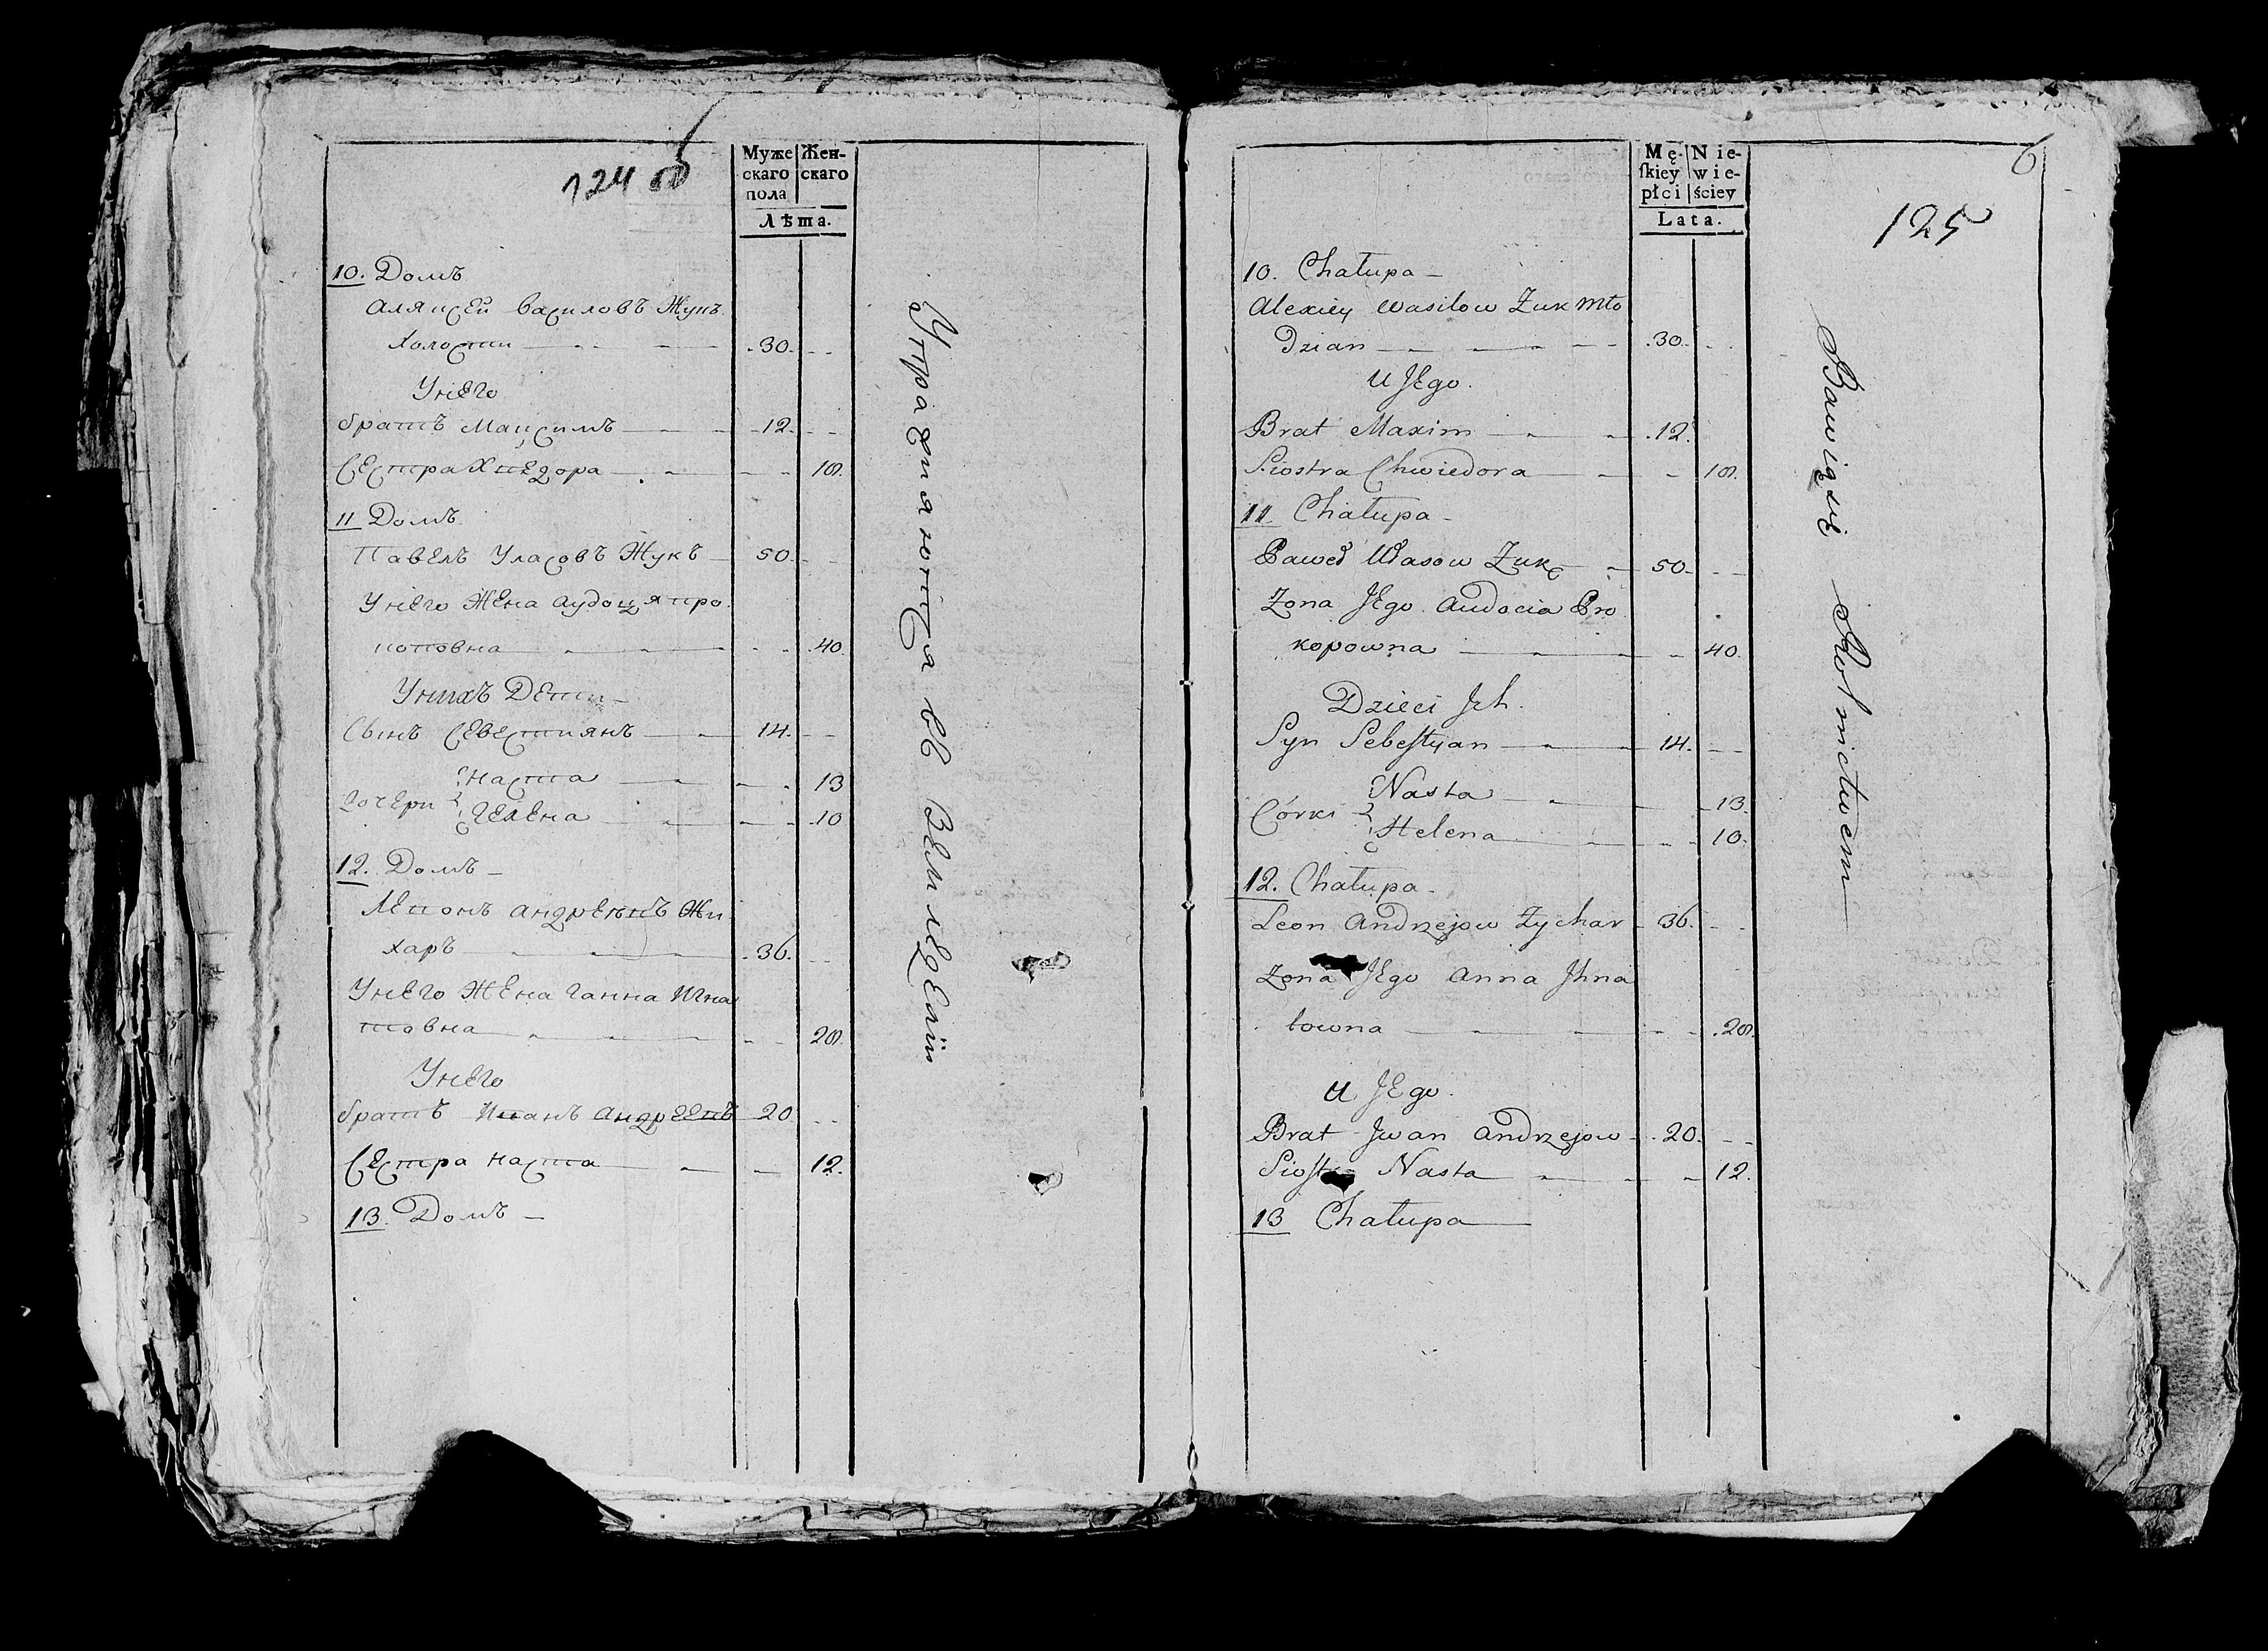 124 об
Муже
скаго
пола
Жен-
скаго
Лѣта.
10. Домъ
Аляксей Василовъ Жукъ
Холости 30
Унего
братъ Максимъ 12
Сестра Хведора 18
11 Домъ
Павелъ Уласовъ Жукъ 50
Унего Жена Аудоця Про
коповна 40
Унихъ Дети
Сынъ Севестиянъ 14
дочери Наста 13
Гелена 10
12. Домъ
Леонъ Андреевъ Жи
харъ 36
Унего Жена Ганна Игна
товна 28
Унего
братъ Иванъ Андреевъ 20
Сестра Наста 12
13. Домъ
Упражняются въ Земледелii
6
125
Mę-
ſkiey
płci
Nie-
wie-
ściey
Lata.
10. Chałupa
Alexiey Wasilow Żuk Mło
Dzian 30
U Jego
Brat Maxim 12
Siostra Chwiedora 18
11. Chałupa
Paweł Ułasow Żuk 50
Żona Jego Audocia Pro
kopowna 40
Dzieci Jch
Syn Sebeſtyan 14
Córki Nasta 13
Helena 10
12. Chałupa
Leon Andrzejow Żychar 36
Żona Jego Anna Jhna
towna 28
U Jego
Brat Jwan Andrzejow 20
Nasta 12
13 Chałupa
Bawią się Rolnictwem